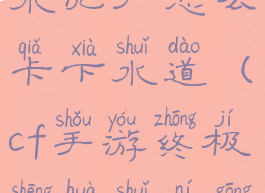 qiǎ xià shuǐ dào
卡下水道（
shǒu yóu zhōng jí
cf手游终极
shēng huà shuǐ ní gōng